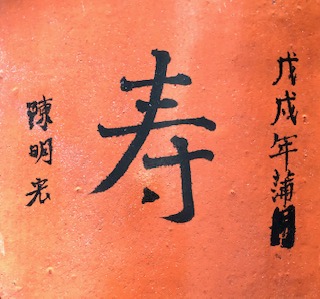 戊戌年蒲月
寿
陳明宏